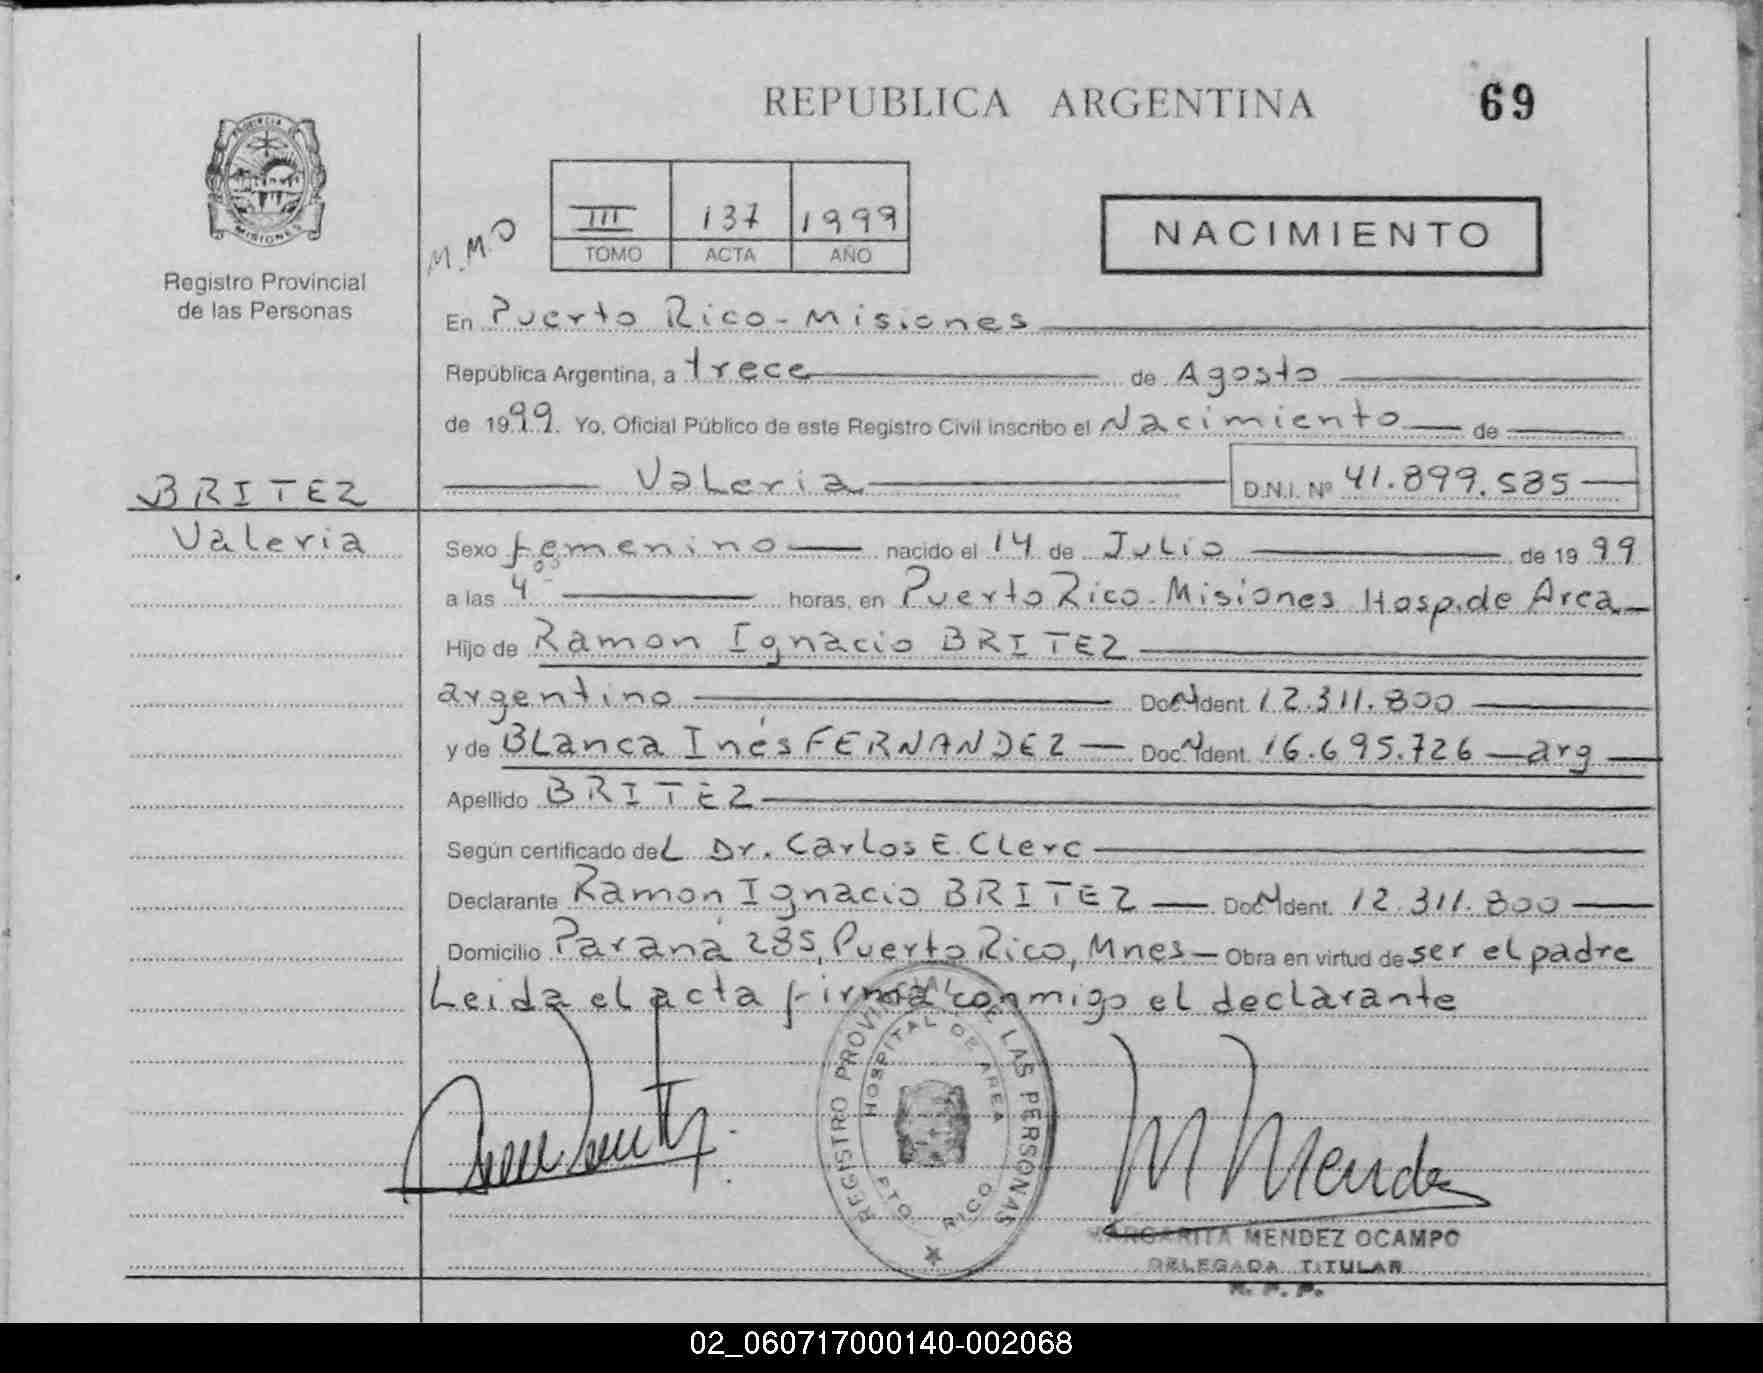 REPUBLICA ARGENTINA
69
PROVINCIA DE
MISIONES
Registro Provincial
de las Personas
M.M.O
III 137 1999
TOMO ACTA AÑO
NACIMIENTO
En Puerto Rico - Misiones
República Argentina, a trece de Agosto
de 1999. Yo, Oficial Público de este Registro Civil inscribo el Nacimiento de
Valeria D.N.I. Nº 41.899.585
BRITEZ
Valeria
Sexo femenino nacido el 14 de Julio de 1999
a las 4⁰⁵ horas, en Puerto Rico - Misiones Hosp. de Area
Hijo de Ramon Ignacio BRITEZ
argentino Doc. Ident. 12.311.800
y de Blanca Inés FERNANDEZ Doc. Ident. 16.695.726 - arg
Apellido BRITEZ
Según certificado del Dr. Carlos E. Clerc
Declarante Ramon Ignacio BRITEZ Doc. Ident. 12.311.800
Domicilio Paraná 285, Puerto Rico, Mnes - Obra en virtud de ser el padre
Leida el acta firma conmigo el declarante
REGISTRO PROVINCIAL DE LAS PERSONAS
HOSPITAL DE AREA
PTO. RICO
M Mendez
MARGARITA MENDEZ OCAMPO
DELEGADA TITULAR
R. P. P.
02_060717000140-002068